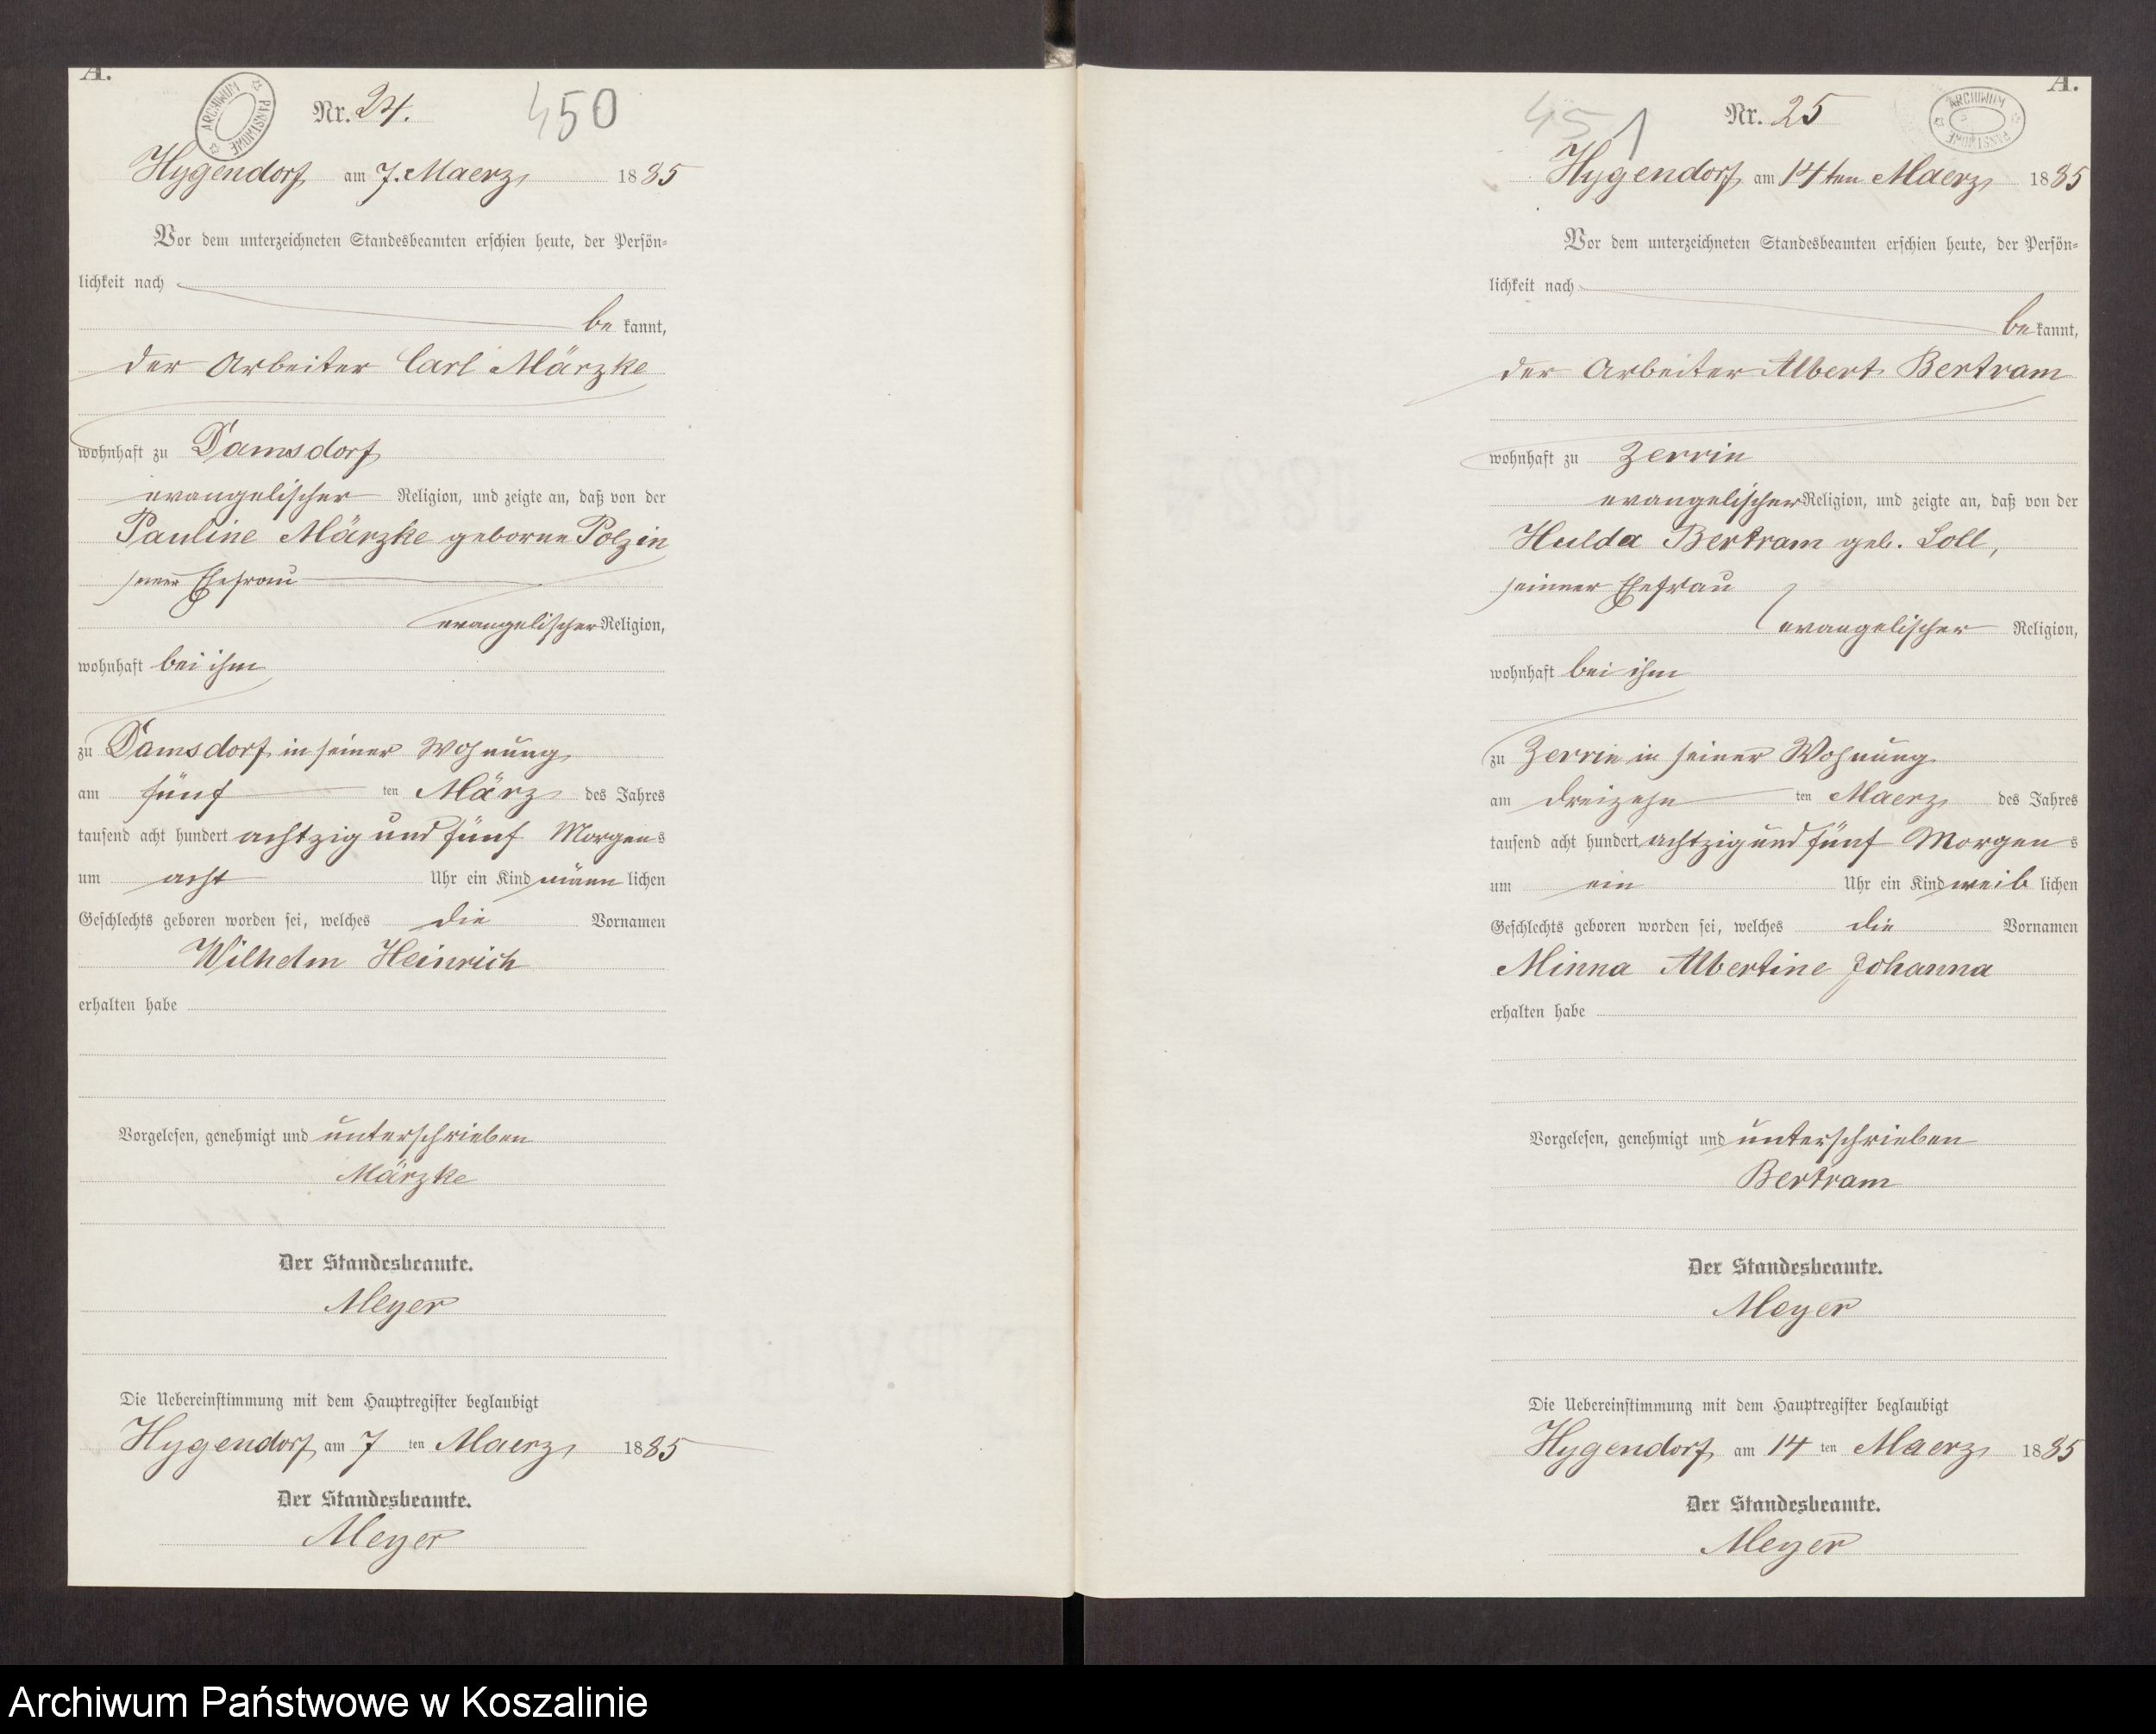 A.
ARCHIWUM PAŃSTWOWE
Nr. 24.
450
Hygendorf am 7. Maerz 1885
Vor dem unterzeichneten Standesbeamten erschien heute, der Persön=
lichkeit nach
be kannt,
der Arbeiter Carl Märzke
wohnhaft zu Damsdorf
evangelischer Religion, und zeigte an, daß von der
Pauline Märzke geborne Polzin
seiner Ehefrau
evangelischer Religion,
wohnhaft bei ihm
zu Damsdorf in seiner Wohnung
am fünf ten März des Jahres
tausend acht hundert achtzig und fünf Morgens
um acht Uhr ein Kind männ lichen
Geschlechts geboren worden sei, welches die Vornamen
Wilhelm Heinrich
erhalten habe
Vorgelesen, genehmigt und unterschrieben
Märzke
Der Standesbeamte.
Meyer
Die Uebereinstimmung mit dem Hauptregister beglaubigt
Hygendorf am 7 ten Maerz 1885
Der Standesbeamte.
Meyer
A.
ARCHIWUM PAŃSTWOWE
Nr. 25
451
Hygendorf am 14ten Maerz 1885
Vor dem unterzeichneten Standesbeamten erschien heute, der Persön=
lichkeit nach
be kannt,
der Arbeiter Albert Bertram
wohnhaft zu Zerrin
evangelischer Religion, und zeigte an, daß von der
Hulda Bertram geb. Loll,
seinner Ehefrau
evangelischer Religion,
wohnhaft bei ihm
zu Zerrin in seiner Wohnung
am dreizehn ten Maerz des Jahres
tausend acht hundert achtzig und fünf Morgen s
um ein Uhr ein Kind weib lichen
Geschlechts geboren worden sei, welches die Vornamen
Minna Albertine Johanna
erhalten habe
Vorgelesen, genehmigt und unterschrieben
Bertram
Der Standesbeamte.
Meyer
Die Uebereinstimmung mit dem Hauptregister beglaubigt
Hygendorf am 14 ten Maerz 1885
Der Standesbeamte.
Meyer
Archiwum Państwowe w Koszalinie